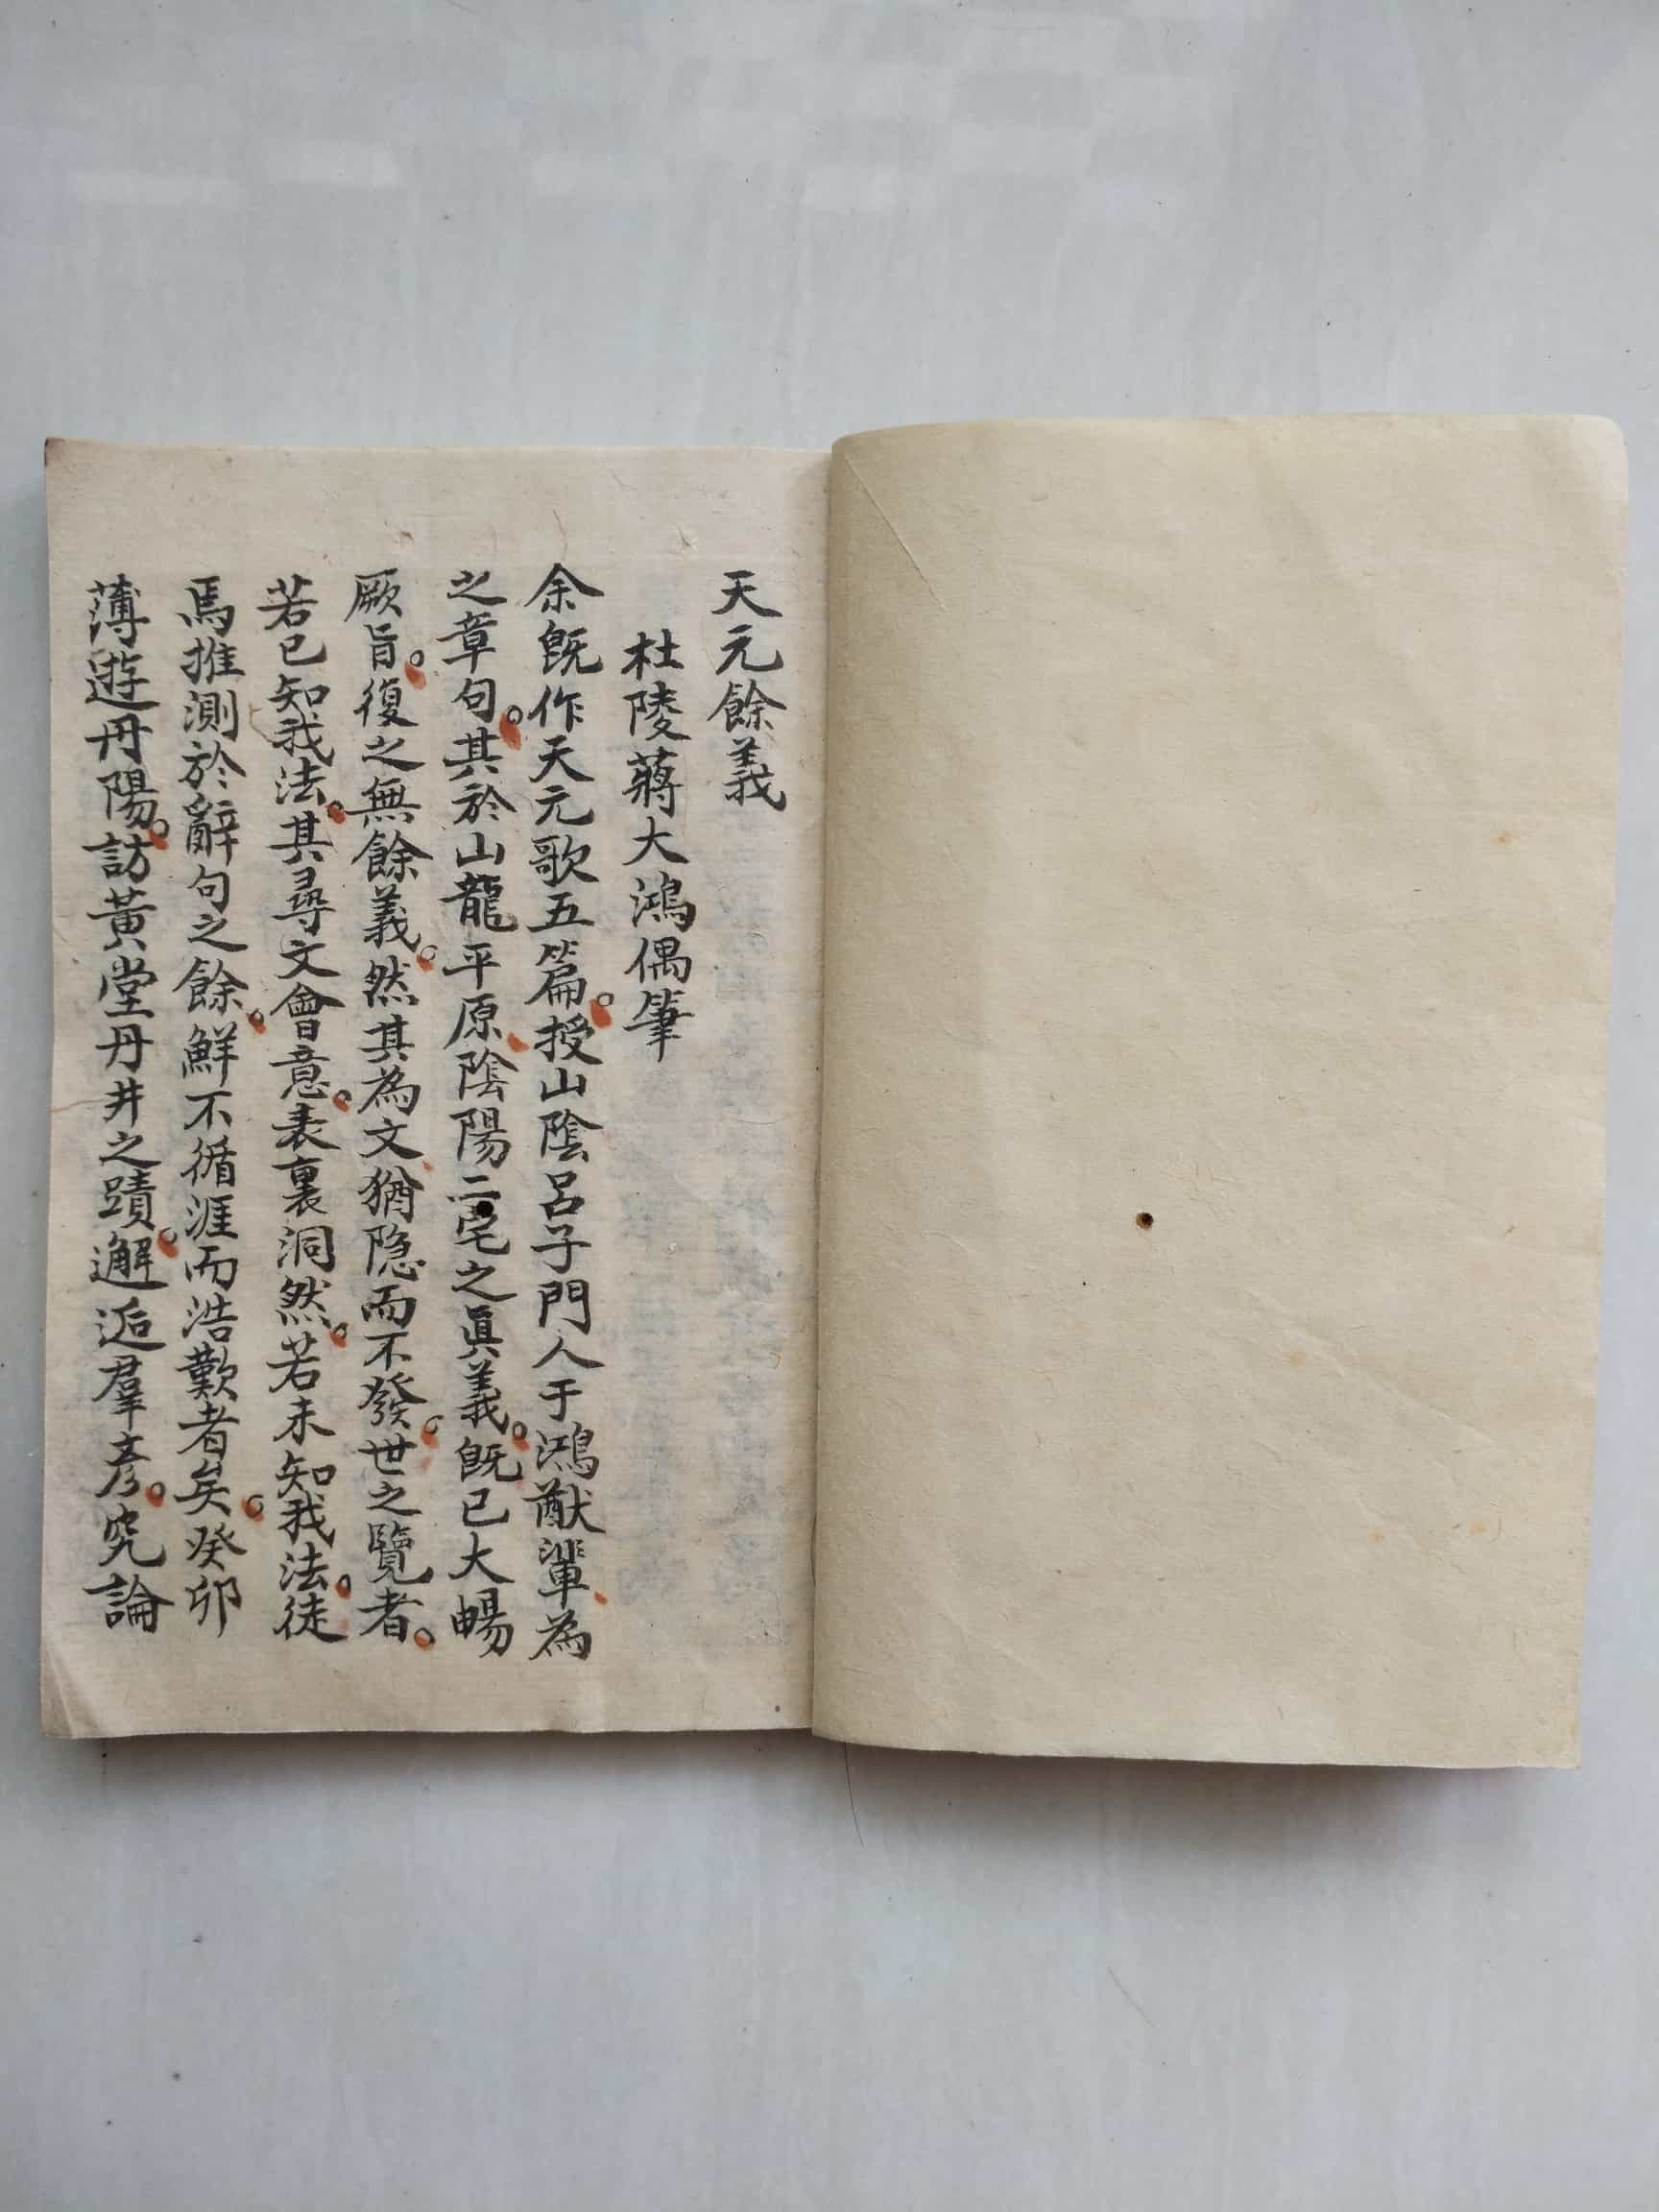 天元餘義
杜陵蔣大鴻偶筆
余旣作天元歌五篇。授山陰呂子門人于鴻猷輩、為
之章句。其於山龍平原、陰陽二宅之眞義。旣已大暢
厥旨。復之無餘義。然其為文、猶隐而不發。世之覽者。
若已知我法。其尋文會意。表裏洞然。若未知我法。徒
焉推測於辭句之餘。鮮不循涯而浩歎者矣。癸卯
薄遊丹陽。訪黃堂丹井之蹟。邂逅羣彥。究論